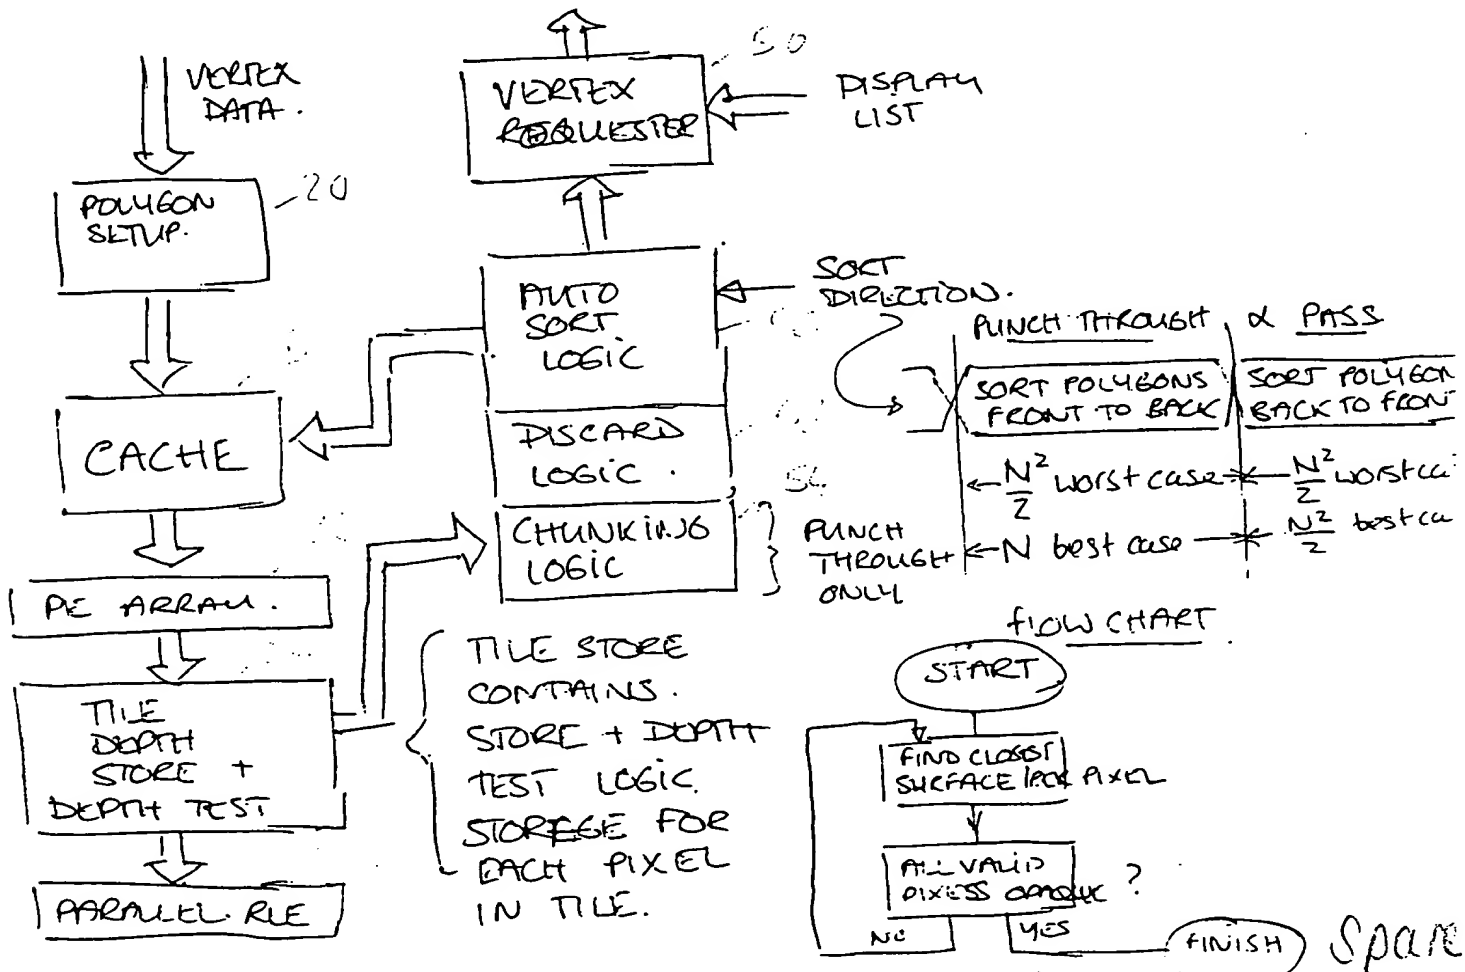 VERTEX
DATA.
20
POLYGON
SETUP.
CACHE
PE ARRAY.
TILE
DEPTH
STORE +
DEPTH TEST
PARALLEL RLE
50
VERTEX
REQUESTER
DISPLAY
LIST
AUTO
SORT
LOGIC
SORT
DIRECTION.
DISCARD
LOGIC.
54
CHUNKING
LOGIC
PUNCH
THROUGH
ONLY
TILE STORE
CONTAINS.
STORE + DEPTH
TEST LOGIC.
STOREGE FOR
EACH PIXEL
IN TILE.
PUNCH THROUGH
α PASS
SORT POLYGONS
FRONT TO BACK
SORT POLYGON
BACK TO FRON
N²/2 worst case
N²/2 worst ca
N best case
N²/2 best ca
FLOW CHART.
START
FIND CLOSEST
SURFACE / PIXEL
ALL VALID
PIXELS OPAQUE ?
NO
YES
FINISH
Spare